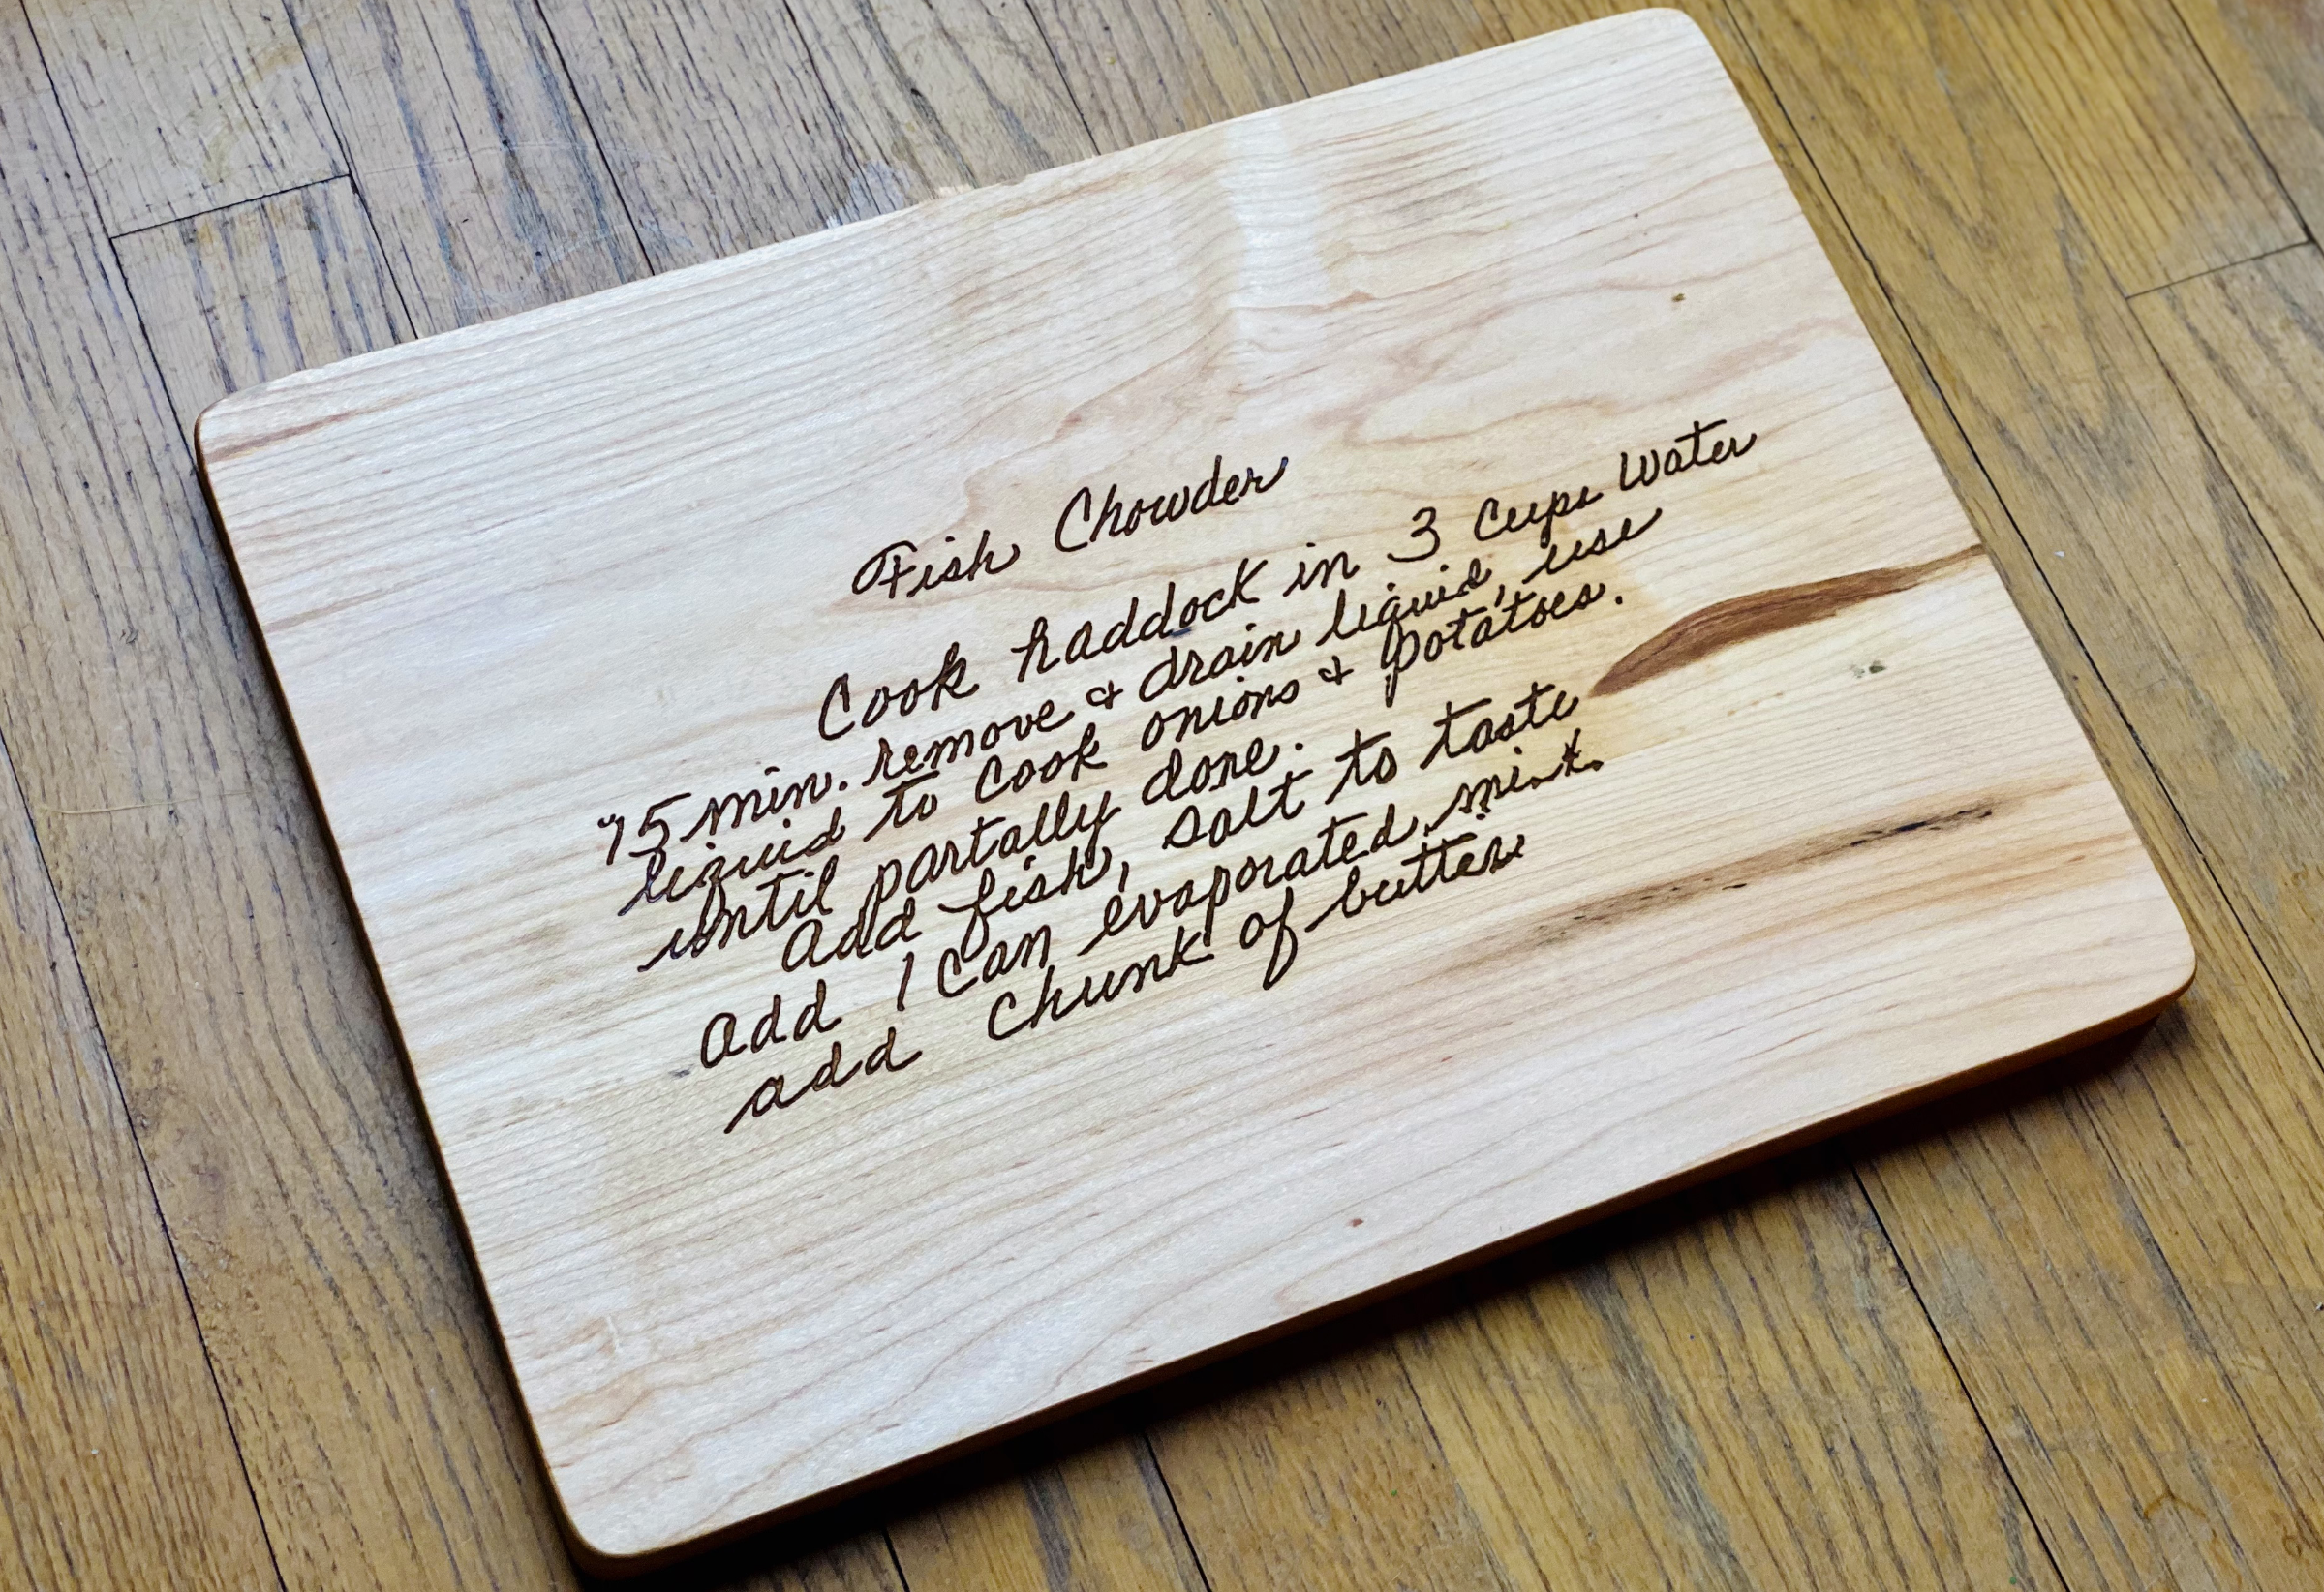 Fish Chowder
Cook haddock in 3 cups water
15 min. remove & drain liquid, use
liquid to cook onions & potatoes.
until partally done.
add fish, salt to taste
add 1 can evaporated
add chunk of butter